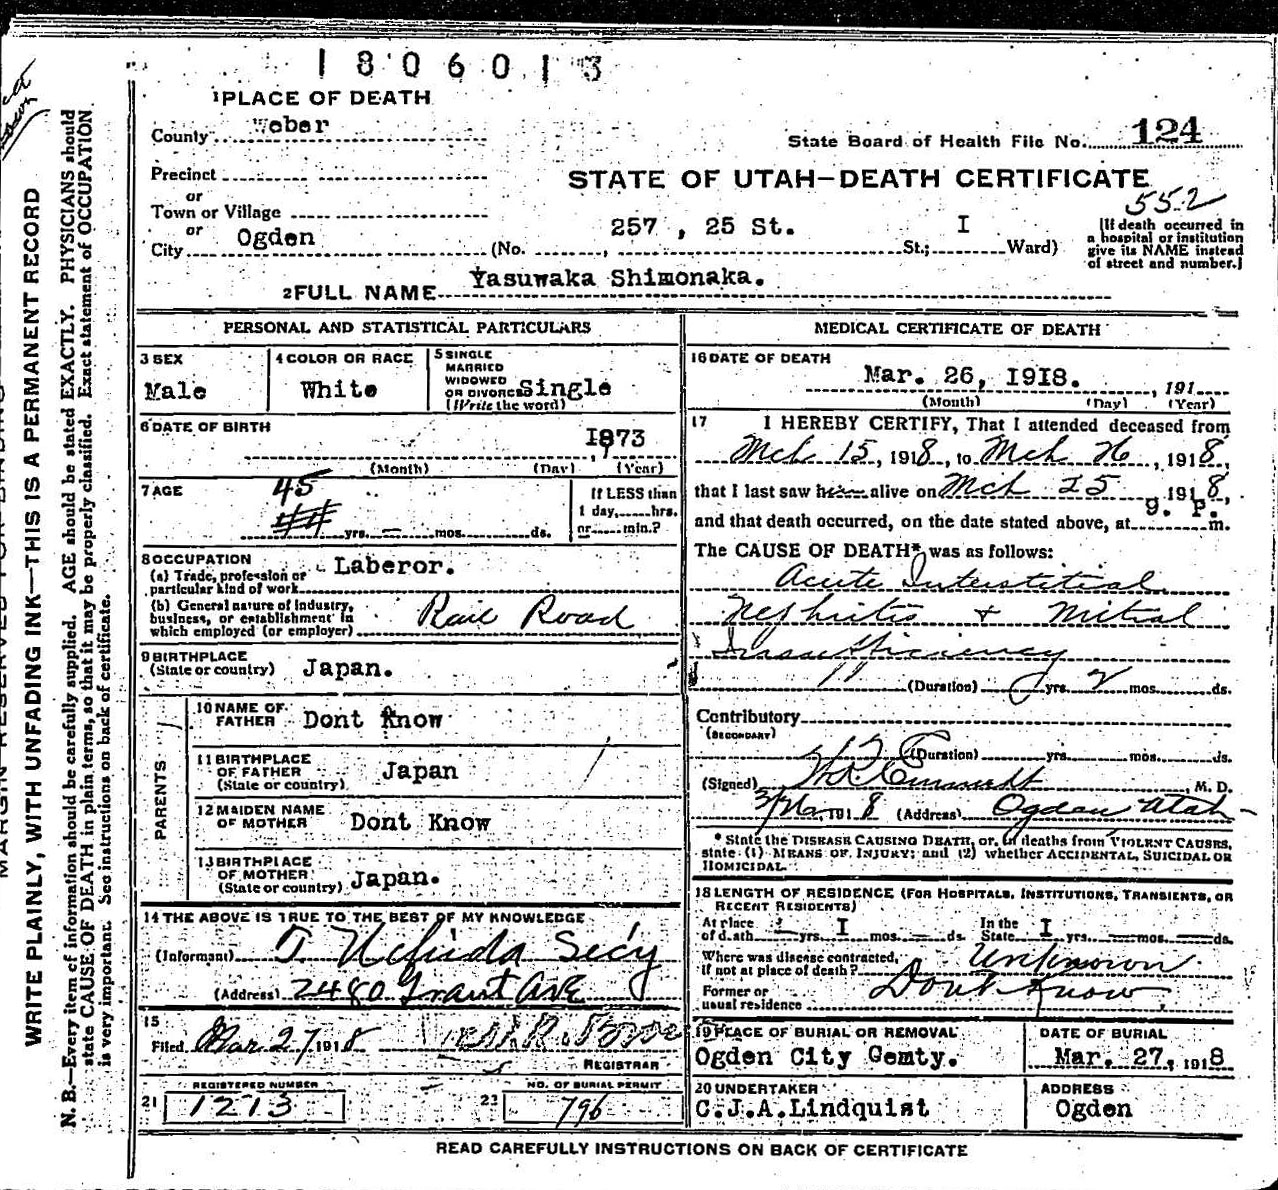 1806013
1 PLACE OF DEATH
County Weber
State Board of Health File No. 124
Precinct
STATE OF UTAH—DEATH CERTIFICATE
or
Town or Village
552
or
City Ogden (No. 257, 25 St. St.; I Ward)
[If death occurred in a hospital or institution give its NAME instead of street and number.]
2 FULL NAME Yasuwaka Shimonaka.
PERSONAL AND STATISTICAL PARTICULARS
3 SEX
Male
4 COLOR OR RACE
White
5 SINGLE
MARRIED
WIDOWED
OR DIVORCED Single
(Write the word)
6 DATE OF BIRTH
1873
(Month) (Day) (Year)
7 AGE
45
44 yrs. — mos. ds.
If LESS than
1 day, hrs.
or min.?
8 OCCUPATION
(a) Trade, profession or
particular kind of work Laberor.
(b) General nature of industry,
business, or establishment in
which employed (or employer) Rail Road
9 BIRTHPLACE
(State or country) Japan.
PARENTS
10 NAME OF
FATHER Dont Know
11 BIRTHPLACE
OF FATHER
(State or country) Japan
12 MAIDEN NAME
OF MOTHER Dont Know
13 BIRTHPLACE
OF MOTHER
(State or country) Japan.
14 THE ABOVE IS TRUE TO THE BEST OF MY KNOWLEDGE
(Informant) Secy
(Address) 2480 Grant Ave
15
Filed Mar 27 1918
REGISTRAR
REGISTERED NUMBER
21 1213
NO. OF BURIAL PERMIT
23 796
MEDICAL CERTIFICATE OF DEATH
16 DATE OF DEATH
Mar. 26, I9I8. , 191
(Month) (Day) (Year)
17 I HEREBY CERTIFY, That I attended deceased from
Mch 15, 1918, to Mch 26, 1918,
that I last saw him alive on Mch 25 191 8,
and that death occurred, on the date stated above, at 9. P. m.
The CAUSE OF DEATH* was as follows:
Acute Interstitial
Nephritis & Mitral
Insufficiency
(Duration) yrs. 2 mos. ds.
Contributory
(SECONDARY)
(Duration) yrs. mos. ds.
(Signed) , M. D.
191 8 (Address) Ogden Utah
* State the DISEASE CAUSING DEATH, or, in deaths from VIOLENT CAUSES,
state (1) MEANS OF INJURY; and (2) whether ACCIDENTAL, SUICIDAL OR
HOMICIDAL.
18 LENGTH OF RESIDENCE (FOR HOSPITALS, INSTITUTIONS, TRANSIENTS, OR
RECENT RESIDENTS)
At place
of death — yrs. I mos. — ds. In the State I yrs. — mos. — ds.
Where was disease contracted,
if not at place of death? Unknown
Former or
usual residence Don't Know
19 PLACE OF BURIAL OR REMOVAL
Ogden City Cemty.
DATE OF BURIAL
Mar. 27, 1918
20 UNDERTAKER
C.J.A.Lindquist
ADDRESS
Ogden
READ CAREFULLY INSTRUCTIONS ON BACK OF CERTIFICATE
WRITE PLAINLY, WITH UNFADING INK—THIS IS A PERMANENT RECORD
N. B.—Every item of information should be carefully supplied. AGE should be stated EXACTLY. PHYSICIANS should
state CAUSE OF DEATH in plain terms, so that it may be properly classified. Exact statement of OCCUPATION
is very important. See instructions on back of certificate.